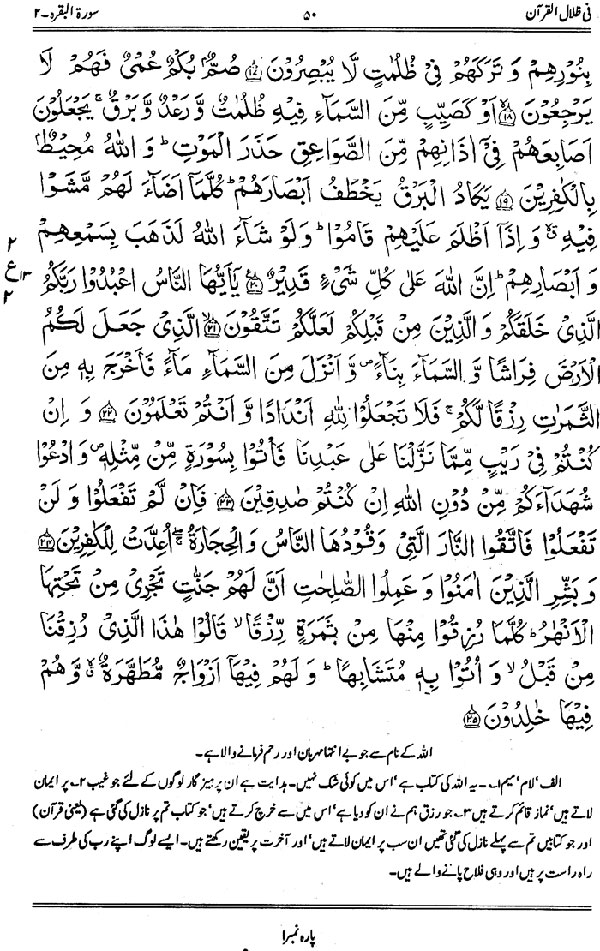 فی ظلال القرآن ۵۰ سورۃ البقرہ۔۲
بِنُوْرِهِمْ وَ تَرَكَهُمْ فِيْ ظُلُمٰتٍ لَّا يُبْصِرُوْنَ ﴿۱۷﴾ صُمٌّۢ بُكْمٌ عُمْيٌ فَهُمْ لَا
يَرْجِعُوْنَ ﴿۱۸﴾ اَوْ كَصَيِّبٍ مِّنَ السَّمَآءِ فِيْهِ ظُلُمٰتٌ وَّ رَعْدٌ وَّ بَرْقٌ ۚ يَجْعَلُوْنَ
اَصَابِعَهُمْ فِيْٓ اٰذَانِهِمْ مِّنَ الصَّوَاعِقِ حَذَرَ الْمَوْتِ ؕ وَ اللّٰهُ مُحِيْطٌۢ
بِالْكٰفِرِيْنَ ﴿۱۹﴾ يَكَادُ الْبَرْقُ يَخْطَفُ اَبْصَارَهُمْ ؕ كُلَّمَآ اَضَآءَ لَهُمْ مَّشَوْا
فِيْهِ ۙ وَ اِذَآ اَظْلَمَ عَلَيْهِمْ قَامُوْا ؕ وَ لَوْ شَآءَ اللّٰهُ لَذَهَبَ بِسَمْعِهِمْ
وَ اَبْصَارِهِمْ ؕ اِنَّ اللّٰهَ عَلٰى كُلِّ شَيْءٍ قَدِيْرٌ ﴿۲۰﴾ يٰۤاَيُّهَا النَّاسُ اعْبُدُوْا رَبَّكُمُ
۲
ع ۱۳
۲
الَّذِيْ خَلَقَكُمْ وَ الَّذِيْنَ مِنْ قَبْلِكُمْ لَعَلَّكُمْ تَتَّقُوْنَ ﴿۲۱﴾ الَّذِيْ جَعَلَ لَكُمُ
الْاَرْضَ فِرَاشًا وَّ السَّمَآءَ بِنَآءً ۪ وَّ اَنْزَلَ مِنَ السَّمَآءِ مَآءً فَاَخْرَجَ بِهٖ مِنَ
الثَّمَرٰتِ رِزْقًا لَّكُمْ ۚ فَلَا تَجْعَلُوْا لِلّٰهِ اَنْدَادًا وَّ اَنْتُمْ تَعْلَمُوْنَ ﴿۲۲﴾ وَ اِنْ
كُنْتُمْ فِيْ رَيْبٍ مِّمَّا نَزَّلْنَا عَلٰى عَبْدِنَا فَاْتُوْا بِسُوْرَةٍ مِّنْ مِّثْلِهٖ ۪ وَ ادْعُوْا
شُهَدَآءَكُمْ مِّنْ دُوْنِ اللّٰهِ اِنْ كُنْتُمْ صٰدِقِيْنَ ﴿۲۳﴾ فَاِنْ لَّمْ تَفْعَلُوْا وَ لَنْ
تَفْعَلُوْا فَاتَّقُوا النَّارَ الَّتِيْ وَقُوْدُهَا النَّاسُ وَ الْحِجَارَةُ ۚۖ اُعِدَّتْ لِلْكٰفِرِيْنَ ﴿۲۴﴾
وَ بَشِّرِ الَّذِيْنَ اٰمَنُوْا وَ عَمِلُوا الصّٰلِحٰتِ اَنَّ لَهُمْ جَنّٰتٍ تَجْرِيْ مِنْ تَحْتِهَا
الْاَنْهٰرُ ؕ كُلَّمَا رُزِقُوْا مِنْهَا مِنْ ثَمَرَةٍ رِّزْقًا ۙ قَالُوْا هٰذَا الَّذِيْ رُزِقْنَا
مِنْ قَبْلُ ۙ وَ اُتُوْا بِهٖ مُتَشَابِهًا ؕ وَ لَهُمْ فِيْهَآ اَزْوَاجٌ مُّطَهَّرَةٌ ۙ وَّ هُمْ
فِيْهَا خٰلِدُوْنَ ﴿۲۵﴾
اللہ کے نام سے جو بے انتہا مہربان اور رحم فرمانے والا ہے۔
الف‘ لام‘ میم ۱۔ یہ اللہ کی کتاب ہے‘ اس میں کوئی شک نہیں۔ ہدایت ہے ان پرہیز گار لوگوں کے لئے جو غیب ۲۔ پر ایمان
لاتے ہیں‘ نماز قائم کرتے ہیں ۳۔ جو رزق ہم نے ان کو دیا ہے‘ اس میں سے خرچ کرتے ہیں‘ جو کتاب تم پر نازل کی گئی ہے (یعنی قرآن)
اور جو کتابیں تم سے پہلے نازل کی گئی تھیں ان سب پر ایمان لاتے ہیں‘ اور آخرت پر یقین رکھتے ہیں۔ ایسے لوگ اپنے رب کی طرف سے
راہ راست پر ہیں اور وہی فلاح پانے والے ہیں۔
پارہ نمبر۱